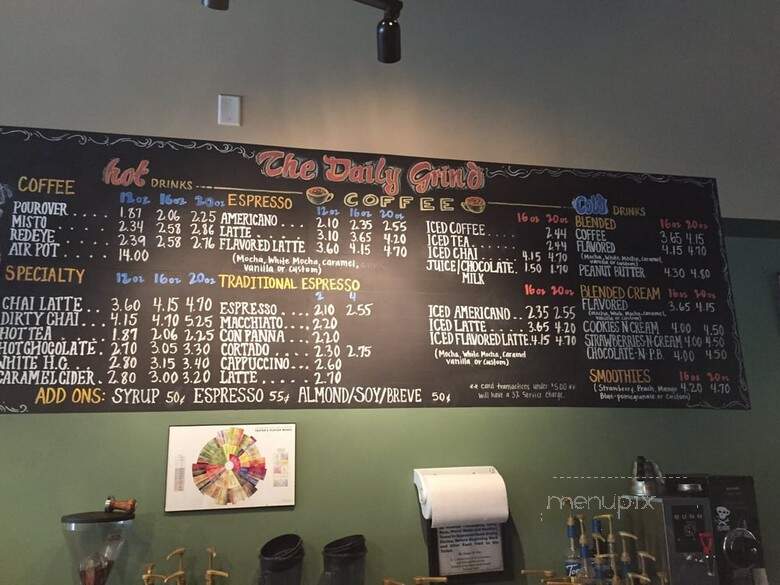 The Daily Grind
COFFEE
hot DRINKS
COFFEE 12oz 16oz 20oz
POUROVER.... 1.87 2.06 2.25
MISTO ....... 2.34 2.58 2.86
REDEYE ...... 2.39 2.58 2.76
AIR POT .... 14.00
SPECIALTY 12oz 16oz 20oz
CHAI LATTE... 3.60 4.15 4.70
DIRTY CHAI... 4.15 4.70 5.25
HOT TEA 1.87 2.06 2.25
HOTCHOCOLATE. 2.70 3.05 3.30
WHITE H.C. 2.80 3.15 3.40
CARAMEL CIDER. 2.80 3.00 3.20
ESPRESSO 12oz 16oz 20oz
AMERICANO .... 2.10 2.35 2.55
LATTE ........ 3.10 3.65 4.20
FLAVORED LATTE 3.60 4.15 4.70
(Mocha, White Mocha, Caramel,
Vanilla or Custom)
TRADITIONAL ESPRESSO
2 4
ESPRESSO.... 2.10 2.55
MACCHIATO... 2.20
CON PANNA... 2.20
CORTADO .... 2.30 2.75
CAPPUCCINO... 2.60
LATTE ...... 2.70
ADD ONS: SYRUP 50¢ ESPRESSO 55¢ ALMOND/SOY/BREVE 50¢
Cold DRINKS
16oz 20oz
ICED COFFEE...... 2.44
ICED TEA ........ 2.44
ICED CHAI ..... 4.15 4.70
JUICE/CHOCOLATE 1.50 1.70
MILK
16oz 20oz
ICED AMERICANO.. 2.35 2.55
ICED LATTE..... 3.65 4.20
ICED FLAVORED LATTE 4.15 4.70
(Mocha, White Mocha, Caramel
Vanilla or Custom)
** Card transactions under $5.00 **
will have a 3% Service Charge.
BLENDED 16oz 20oz
COFFEE 3.65 4.15
FLAVORED 4.15 4.70
(Mocha, White Mocha, Caramel,
vanilla or custom)
PEANUT BUTTER 4.30 4.80
BLENDED CREAM 16oz 20oz
FLAVORED 3.65 4.15
(Mocha, White Mocha, Caramel,
vanilla or Custom)
COOKIES N CREAM 4.00 4.50
STRAWBERRIES N CREAM 4.00 4.50
CHOCOLATE-N-P.B. 4.00 4.50
SMOOTHIES 16oz 20oz
(Strawberry, Peach, Mango 4.20 4.70
Blue-pomegranate or Custom)
menupix
BUNN